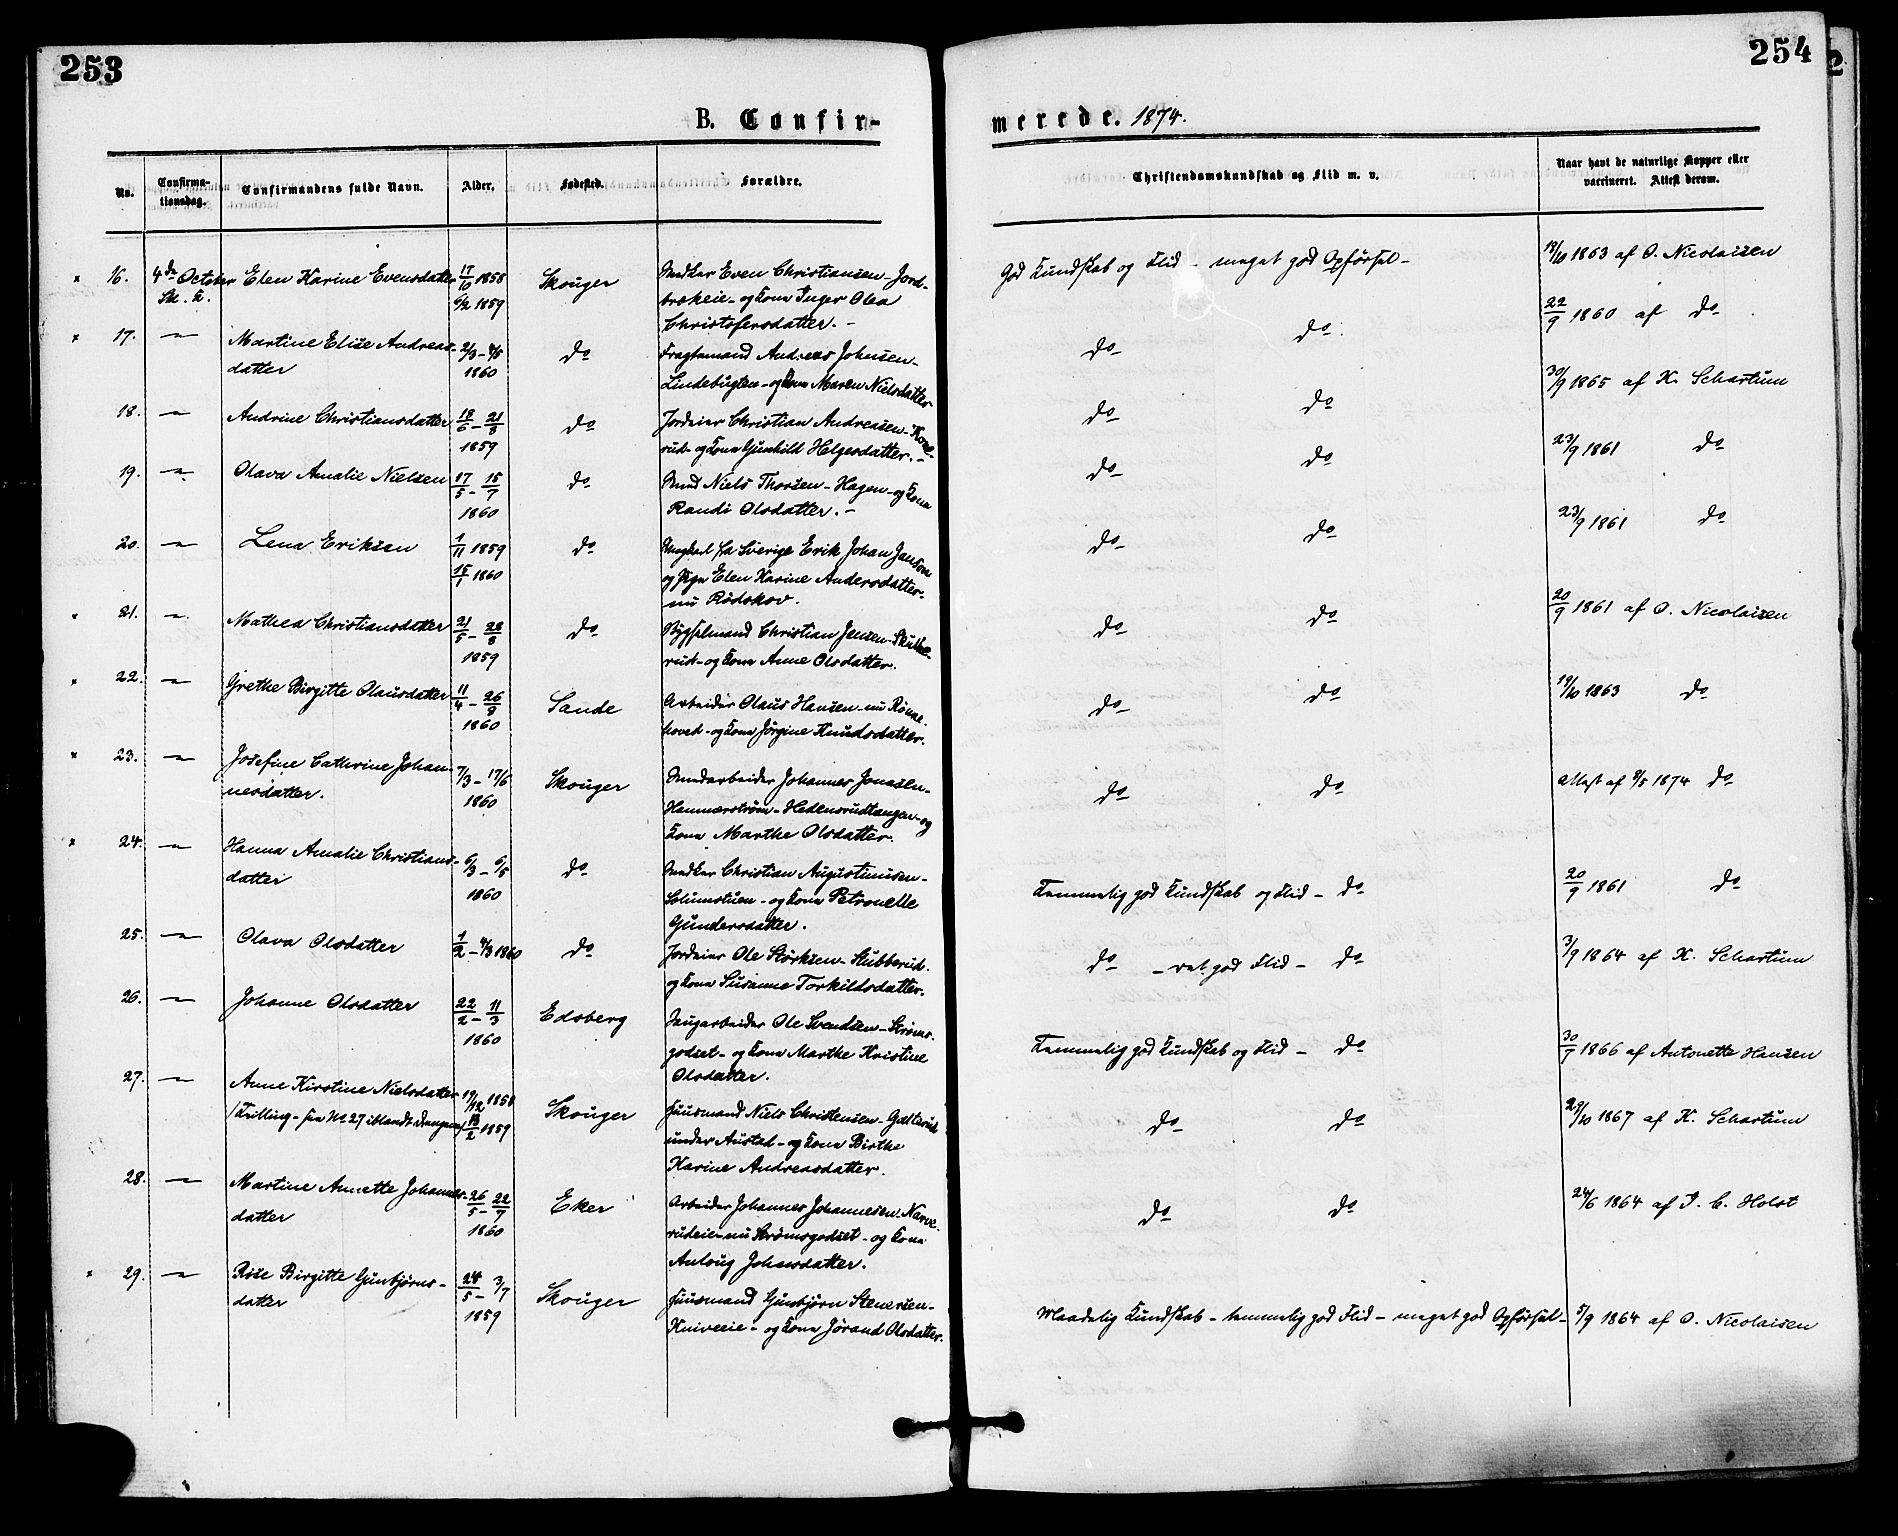 253
254
B. Confir-
merede. 1874.
No.
Confirma-
tionsdag.
Confirmandens fulde Navn.
Alder.
Fødested.
Forældre.
Christendomskundskab og Flid m. v.
Naar havt de naturlige Kopper eller
vaccineret. Attest derom.
16. 4de October Elen Karine Evensdatter 17/10 1858 Skouger Even Christiansen - Jord-
Sk. K. 6/2 1859 brekeie - og Kone Inger Olea
Christofersdatter. -
God Kundskab og Flid - meget god Opførsel - 13/10 1863 af O. Nicolaisen
17. — Martine Elise Andreas- 2/3 - 4/5 do Fragtemand Andreas Johnsen -
datter 1860 Lindebugten - og Kone Maren Nielsdatter
do do 22/9 1860 af do
18. — Andrine Christiansdatter 18/6 - 21/8 do Jordeier Christian Andreasen - Kone-
1859 rud - og Kone Gunhild Helgesdatter. -
do do 30/9 1865 af K. Schartum
19. — Olava Amalie Nielsen 17/5 - 15/7 do Niels Thorsen - Hagen - og Kone
1860 Randi Olsdatter. -
do do 23/9 1861 do
20. — Lena Eriksen 1/11 1859 do Ungkarl fra Sverige Erik Johan Janson
15/1 1860 og Pige Elen Karine Andersdatter -
nu Rødskov.
do do 23/9 1861 do
21. — Mathea Christiansdatter 21/5 - 28/8 do Bygselmand Christian Jensen - Skutke-
1859 rud - og Kone Anne Olsdatter.
do do 20/9 1861 af O. Nicolaisen
22. — Grethe Birgitte Olausdatter 11/4 - 26/9 Sande Arbeider Olaus Hansen - nu Rønne-
1860 hoved - og Kone Jørgine Knudsdatter.
do do 19/10 1863 do
23. — Josefine Cathrine Johan- 7/3 - 17/6 Skouger Johannes Jonasen -
nesdatter. 1860 Hammerstrøm - Hedensrudtangen - og
Kone Marthe Olsdatter.
do do Attest 9/5 1874 do
24. — Hanna Amalie Christians- 6/3 - 6/5 do Christian Augustinusen -
datter 1860 Solumstuen - og Kone Petronelle
Gundersdatter.
Temmelig god Kundskab og Flid - do 20/9 1861 do
25. — Olava Olsdatter 1/2 - 4/3 1860 do Jordeier Ole Størksen - Stubberud -
og Kone Susanne Torkildsdatter.
do - ret god Flid - do 3/9 1864 af K. Schartum
26. — Johanne Olsdatter 22/2 - 11/3 Edsberg Saugarbeider Ole Svendsen - Strøms-
1860 godset - og Kone Marthe Kristine
Olsdatter.
Temmelig god Kundskab og Flid - do 30/7 1866 af Antonette Hansen
27. — Anne Kirstine Nielsdatter 19/12 1858 Skouger Huusmand Niels Christensen - Galterud
(Tvilling - fra No 27 iblandt Drengene) 13/2 1859 under Austad - og Kone Birthe
Karine Andreasdatter.
do do 29/10 1867 af K. Schartum
28. — Martine Annette Johannes- 26/5 - 22/7 Eker Arbeider Johannes Johannesen - Narve-
datter 1860 rudeie - nu Strømsgodset - og Kone
Anlaug Johnsdatter.
do do 24/6 1864 af J. C. Holst
29. — Rose Birgitte Gunbjørns- 24/5 - 3/7 Skouger Huusmand Gunbjørn Stenersen -
datter 1859 Kniveeie - og Kone Jørand Olsdatter.
Maadelig Kundskab - temmelig god Flid - meget god Opførsel - 5/9 1864 af O. Nicolaisen